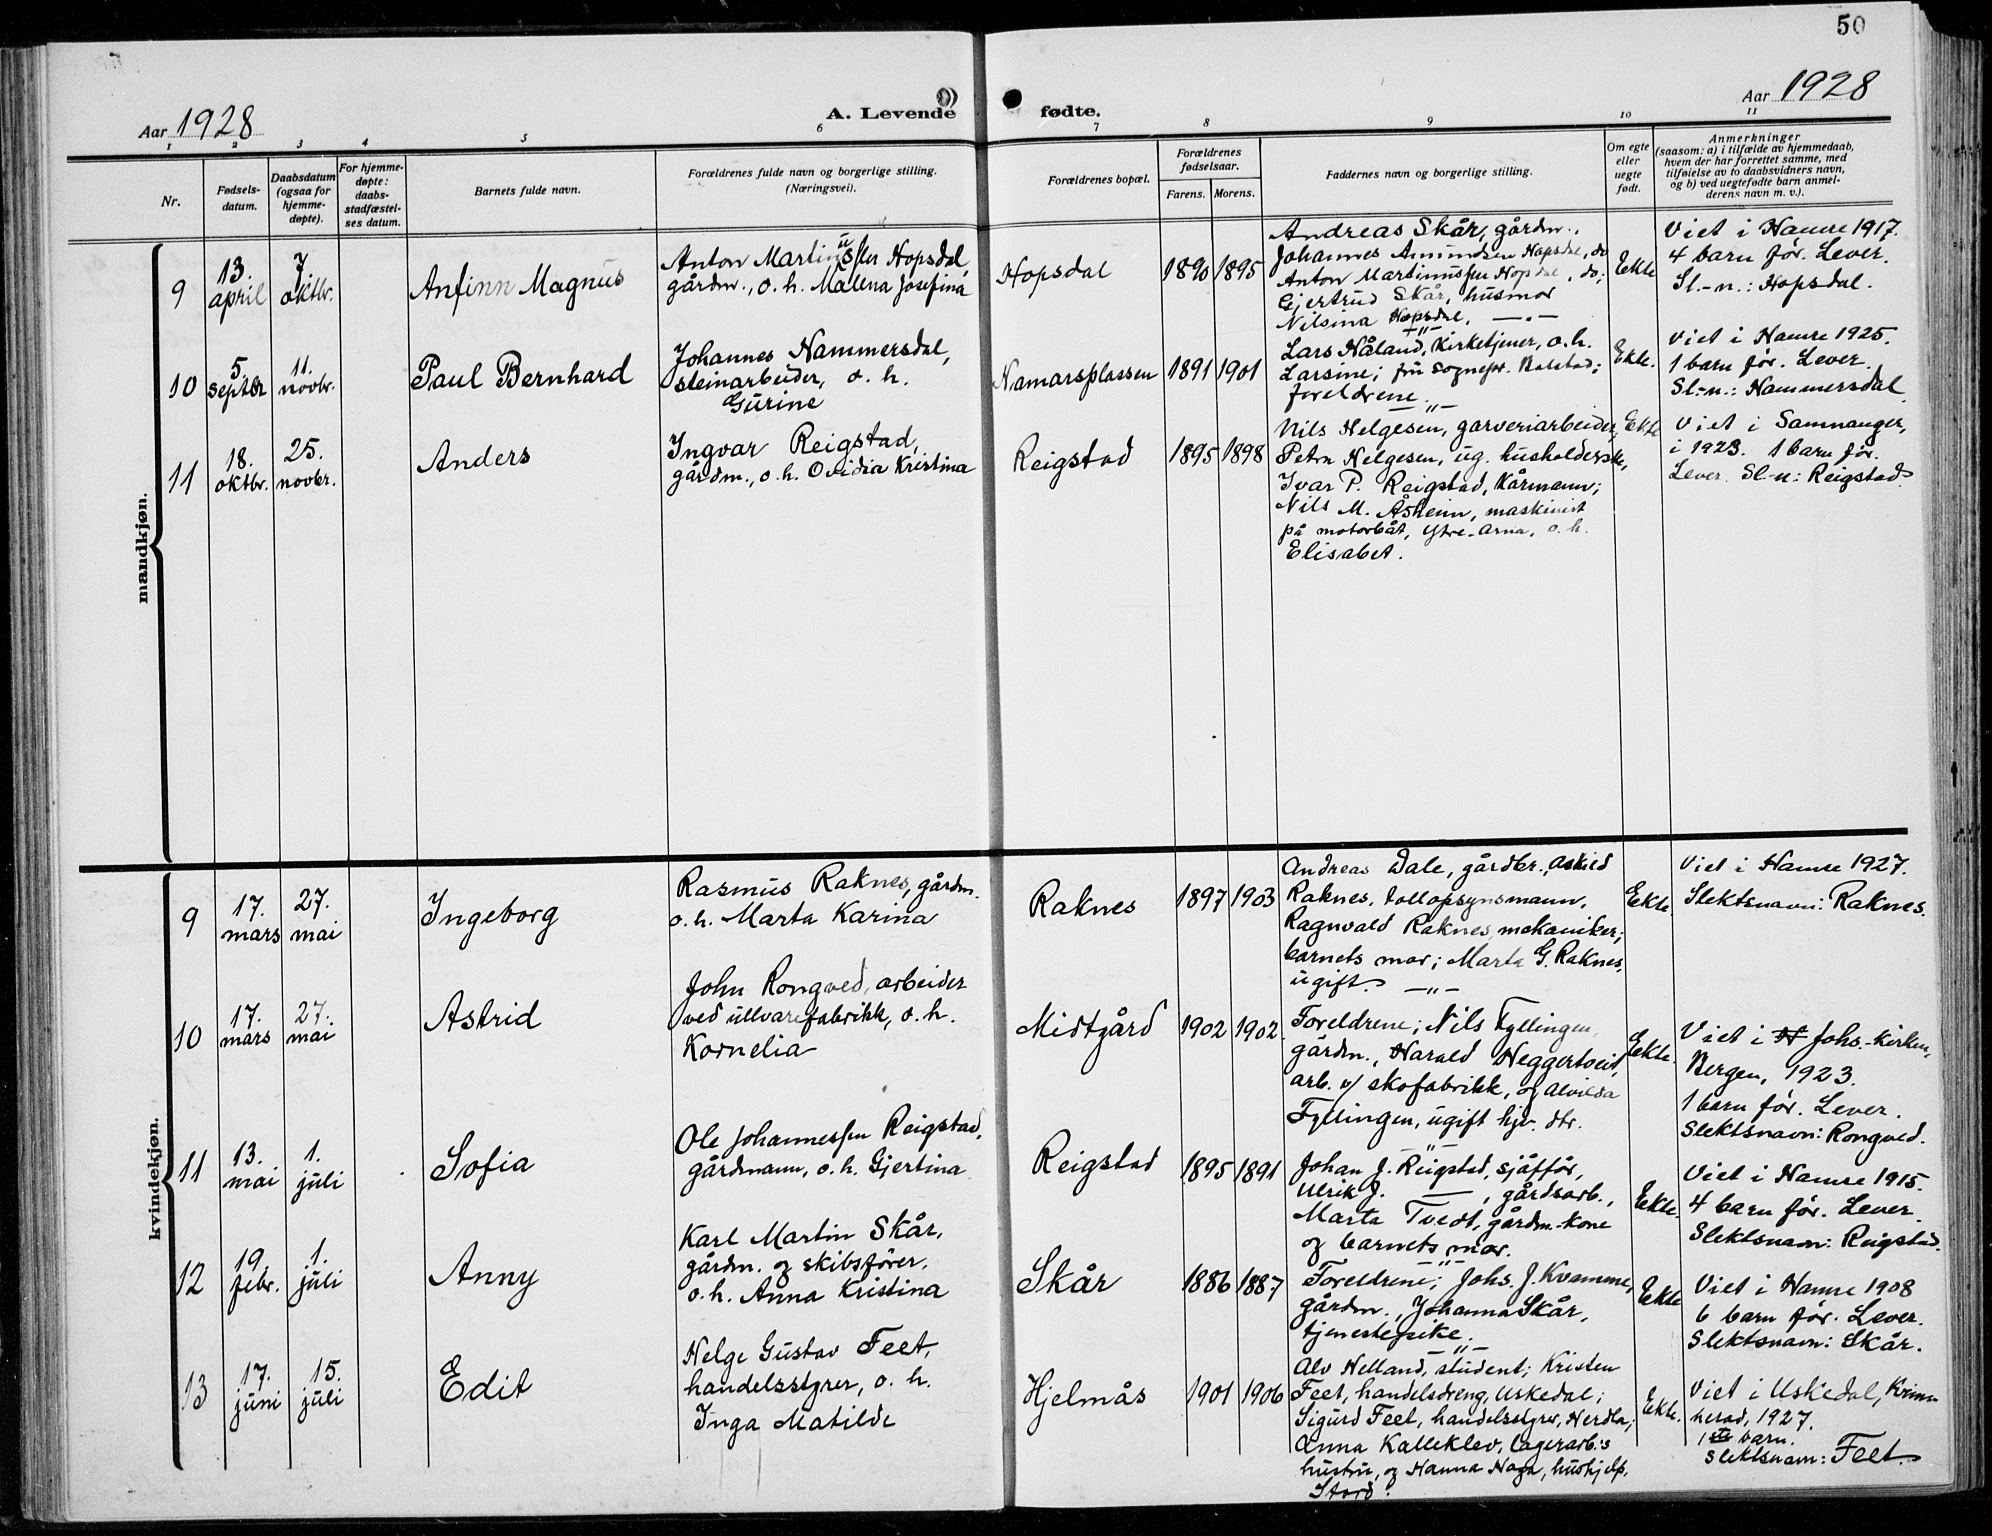 50
Aar 1928
A. Levende
fødte.
Aar 1928
1 2 3 4 5 6 7 8 9 10 11
Nr.
Fødsels-
datum.
Daabsdatum
(ogsaa for
hjemme-
døpte).
For hjemme-
døpte:
daabs-
stadfæstel-
ses datum.
Barnets fulde navn.
Forældrenes fulde navn og borgerlige stilling.
(Næringsvei).
Forældrenes bopæl.
Forældrenes
fødselsaar.
Farens. Morens.
Faddernes navn og borgerlige stilling.
Om egte
eller
uegte
født.
Anmerkninger
(saasom: a) i tilfælde av hjemmedaab,
hvem der har forrettet samme, med
tilføielse av to daabsvidners navn,
og b) ved uegtefødte barn anmel-
derens navn m. v.).
mandkjøn.
9
13.
april
7
oktbr.
Anfinn Magnus
Anton Martinussen Hopsdal,
gårdm., o. h. Malena Josefina
Hopsdal
1890 1895
Andreas Skår, gårdm.,
Johannes Amundsen Hopsdal, do
Anton Martinussen Hopsdal, do;
Gjertrud Skår, husmor
Nilsina Hopsdal, —"—
Ekte
Viet i Hamre 1917.
4 barn før. Lever.
Sl.-n.: Hopsdal.
10
5.
septbr
11.
novbr.
Paul Bernhard
Johannes Hammersdal,
steinarbeider, o. h.
Gurine
Hamarsplassen
1891 1901
Lars Håland, Kirketjener, o.h.
Larsine; fru sognepr. Balstad;
foreldrene.
Ekte.
Viet i Hamre 1925.
1 barn før. Lever.
Sl.-n.: Hammersdal
11
18.
oktbr.
25.
novbr.
Anders
Ingvar Reigstad,
gårdm., o. h. Ovidia Kristina
Reigstad
1895 1898
Nils Helgesen, garveriarbeider,
Petra Helgesen, ug. husholderske,
Ivar P. Reigstad, Kårmann;
Nils M. Åsheim, maskinist
på motorbåt, Ytre-Arna, o. h.
Elisabet.
Ekte
Viet i Samnanger,
i 1923. 1 barn før.
Lever. Sl-n: Reigstad
kvindekjøn.
9
17.
mars
27.
mai
Ingeborg
Rasmus Raknes, gårdm.
o. h. Marta Karina
Raknes
1897 1903
Andreas Dale, gårdbr., Askild
Raknes, tollopsynsmann,
Ragnvald Raknes, mekaniker;
barnets mor; Marta G. Raknes,
ugift. —"—
Ekte.
Viet i Hamre 1927.
Slektsnavn: Raknes.
10
17.
mars
27.
mai
Astrid
John Rongved, arbeider
ved ullvarefabrikk, o. h.
Kornelia
Midtgård
1902 1902
Foreldrene; Nils Fyllingen,
gårdm., Harald Heggertveit,
arb. v/ skofabrikk, og Alvilda
Fyllingen, ugift hjv. dtr.
Ekte.
Viet i H Johs.-Kirken,
Bergen, 1923.
1 barn før. Lever.
Slektsnavn: Rongved.
11
13.
mai
1.
juli
Sofia
Ole Johannessen Reigstad,
gårdmann, o. h. Gjertina
Reigstad
1895 1891
Johan J. Reigstad, sjåffør,
Ulrik J. —, gårdsarb.,
Marta Tvedt, gårdm.-kone
og barnets mor.
Ekte.
Viet i Hamre 1915.
4 barn før. Lever.
Slektsnavn: Reigstad.
12
19.
febr.
1.
juli
Anny
Karl Martin Skår,
gårdm. og skibsfører,
o. h. Anna Kristina
Skår
1886 1887
Foreldrene; Johs. J. Kvamme,
gårdm., Johanna Skår,
tjenestepike.
Ekte
Viet i Hamre 1908
6 barn før. Lever.
Slektsnavn: Skår.
13
17.
juni
15.
juli
Edit
Helge Gustav Feet,
handelsstyrer, o. h.
Inga Matilde
Hjelmås
1901 1906
Alv Helland, student; Kristen
Feet, handelsdreng, Uskedal;
Sigurd Feet, handelsstyrer, Herdla;
Anna Kalleklev, lagerarb.s
hustru, og Hanna Haga, hushjelp,
Stord.
Ekte.
Viet i Uskedal, Kvinn
herad, 1927.
1ste barn.
Slektsnavn: Feet.